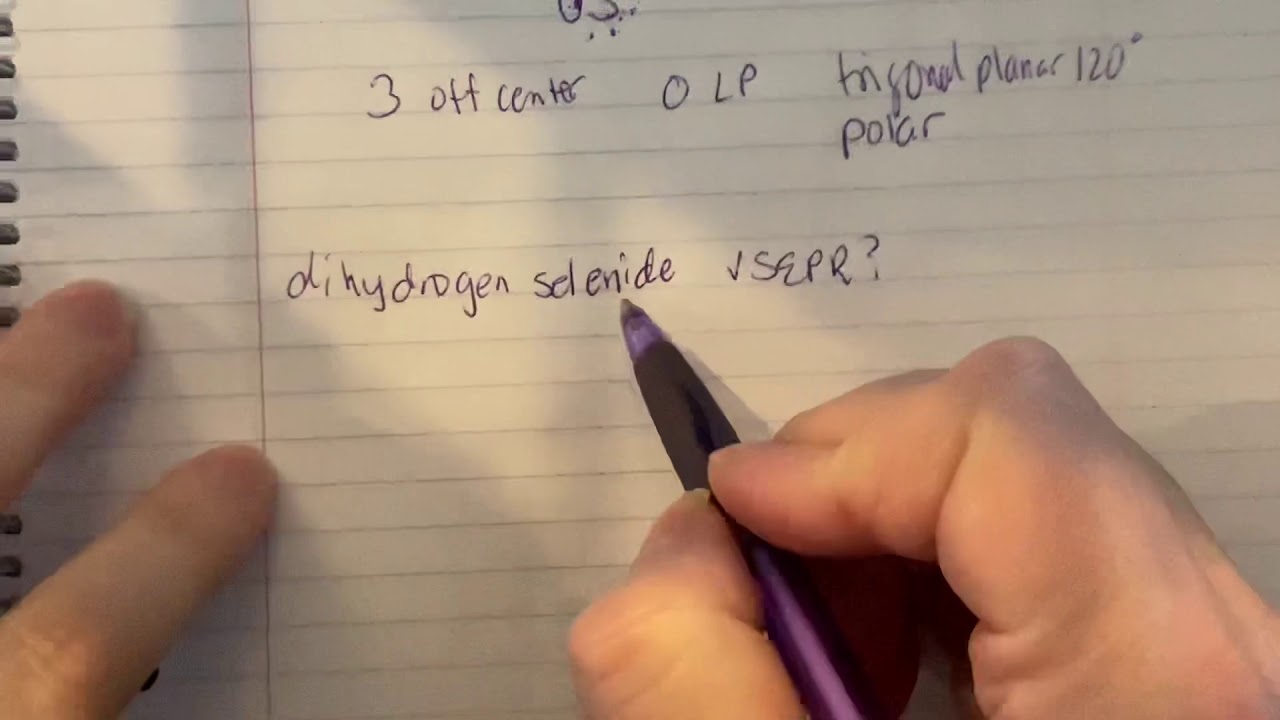 3 off center 0 LP trigonal planar 120°
polar
dihydrogen selenide VSEPR?